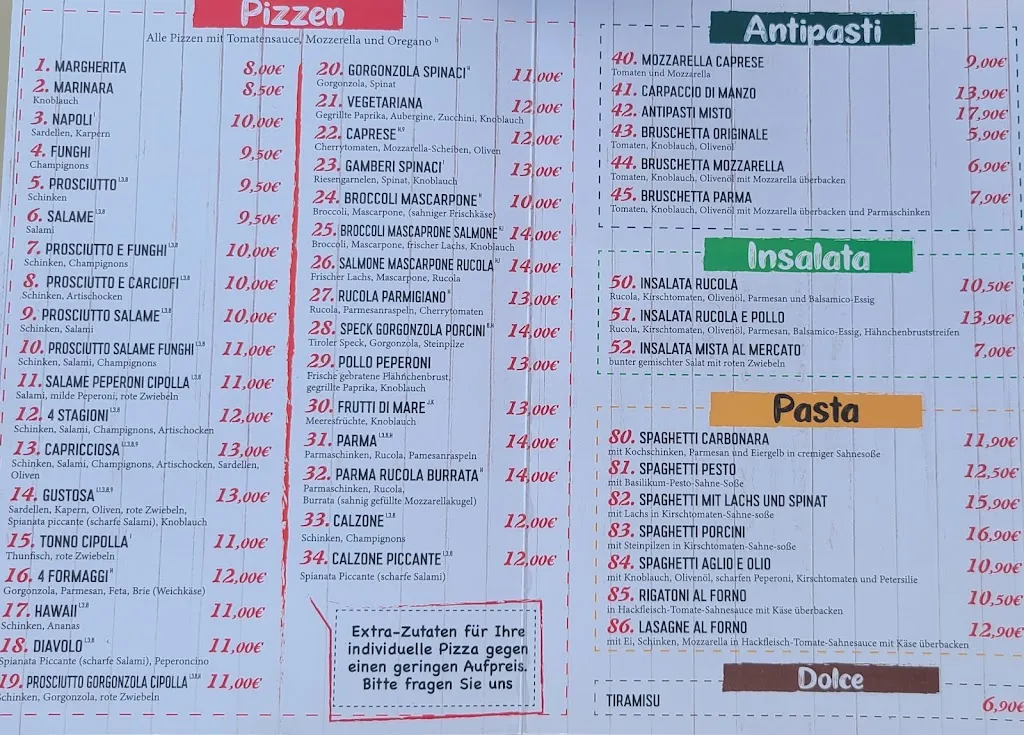 Pizzen
Alle Pizzen mit Tomatensauce, Mozzerella und Oregano h
1. MARGHERITA 8,00€
2. MARINARA 8,50€
Knoblauch
3. NAPOLI I 10,00€
Sardellen, Karpern
4. FUNGHI 9,50€
Champignons
5. PROSCIUTTO 1,3,8 9,50€
Schinken
6. SALAME 1,3,8 9,50€
Salami
7. PROSCIUTTO E FUNGHI 1,3,8 10,00€
Schinken, Champignons
8. PROSCIUTTO E CARCIOFI 1,3,8 10,00€
Schinken, Artischocken
9. PROSCIUTTO SALAME 1,3,8 10,00€
Schinken, Salami
10. PROSCIUTTO SALAME FUNGHI 1,3,8 11,00€
Schinken, Salami, Champignons
11. SALAME PEPERONI CIPOLLA 1,3,8 11,00€
Salami, milde Peperoni, rote Zwiebeln
12. 4 STAGIONI 1,3,8 12,00€
Schinken, Salami, Champignons, Artischocken
13. CAPRICCIOSA 13,00€
Schinken, Salami, Champignons, Artischocken, Sardellen,
Oliven
14. GUSTOSA 13,00€
Sardellen, Kapern, Oliven, rote Zwiebeln,
Spianata piccante (scharfe Salami), Knoblauch
15. TONNO CIPOLLA I 11,00€
Thunfisch, rote Zwiebeln
16. 4 FORMAGGI H 12,00€
Gorgonzola, Parmesan, Feta, Brie (Weichkäse)
17. HAWAII 1,3,8 11,00€
Schinken, Ananas
18. DIAVOLO 1,3,8 11,00€
Spianata Piccante (scharfe Salami), Peperoncino
19. PROSCIUTTO GORGONZOLA CIPOLLA 1,3,8,H 11,00€
Schinken, Gorgonzola, rote Zwiebeln
20. GORGONZOLA SPINACI H 11,00€
Gorgonzola, Spinat
21. VEGETARIANA 12,00€
Gegrillte Paprika, Aubergine, Zucchini, Knoblauch
22. CAPRESE H,9 12,00€
Cherrytomaten, Mozzarella-Scheiben, Oliven
23. GAMBERI SPINACI 13,00€
Riesengarnelen, Spinat, Knoblauch
24. BROCCOLI MASCARPONE H 10,00€
Broccoli, Mascarpone, (sahniger Frischkäse)
25. BROCCOLI MASCAPRONE SALMONE 14,00€
Broccoli, Mascarpone, frischer Lachs, Knoblauch
26. SALMONE MASCARPONE RUCOLA 14,00€
Frischer Lachs, Mascarpone, Rucola
27. RUCOLA PARMIGIANO H 13,00€
Rucola, Parmesanraspeln, Cherrytomaten
28. SPECK GORGONZOLA PORCINI 14,00€
Tiroler Speck, Gorgonzola, Steinpilze
29. POLLO PEPERONI 13,00€
Frische gebratene Hähnchenbrust,
gegrillte Paprika, Knoblauch
30. FRUTTI DI MARE 13,00€
Meeresfrüchte, Knoblauch
31. PARMA 1,3,8,H 14,00€
Parmaschinken, Rucola, Pamesanraspeln
32. PARMA RUCOLA BURRATA H 14,00€
Parmaschinken, Rucola,
Burrata (sahnig gefüllte Mozzarellakugel)
33. CALZONE 1,3,8 12,00€
Schinken, Champignons
34. CALZONE PICCANTE 1,3,8 12,00€
Spianata Piccante (scharfe Salami)
Extra-Zutaten für Ihre
individuelle Pizza gegen
einen geringen Aufpreis.
Bitte fragen Sie uns
Antipasti
40. MOZZARELLA CAPRESE 9,00€
Tomaten und Mozzarella
41. CARPACCIO DI MANZO 13,90€
42. ANTIPASTI MISTO 17,90€
43. BRUSCHETTA ORIGINALE 5,90€
Tomaten, Knoblauch, Olivenöl
44. BRUSCHETTA MOZZARELLA 6,90€
Tomaten, Knoblauch, Olivenöl mit Mozzarella überbacken
45. BRUSCHETTA PARMA 7,90€
Tomaten, Knoblauch, Olivenöl mit Mozzarella überbacken und Parmaschinken
Insalata
50. INSALATA RUCOLA 10,50€
Rucola, Kirschtomaten, Olivenöl, Parmesan und Balsamico-Essig
51. INSALATA RUCOLA E POLLO 13,90€
Rucola, Kirschtomaten, Olivenöl, Parmesan, Balsamico-Essig, Hähnchenbruststreifen
52. INSALATA MISTA AL MERCATO 7,00€
bunter gemischter Salat mit roten Zwiebeln
Pasta
80. SPAGHETTI CARBONARA 11,90€
mit Kochschinken, Parmesan und Eiergelb in cremiger Sahnesoße
81. SPAGHETTI PESTO 12,50€
mit Basilikum-Pesto-Sahne-Soße
82. SPAGHETTI MIT LACHS UND SPINAT 15,90€
mit Lachs in Kirschtomaten-Sahne-soße
83. SPAGHETTI PORCINI 16,90€
mit Steinpilzen in Kirschtomaten-Sahne-soße
84. SPAGHETTI AGLIO E OLIO 10,90€
mit Knoblauch, Olivenöl, scharfen Peperoni, Kirschtomaten und Petersilie
85. RIGATONI AL FORNO 10,50€
in Hackfleisch-Tomate-Sahnesauce mit Käse überbacken
86. LASAGNE AL FORNO 12,90€
mit Ei, Schinken, Mozzarella in Hackfleisch-Tomate-Sahnesauce mit Käse überbacken
Dolce
TIRAMISU 6,90€